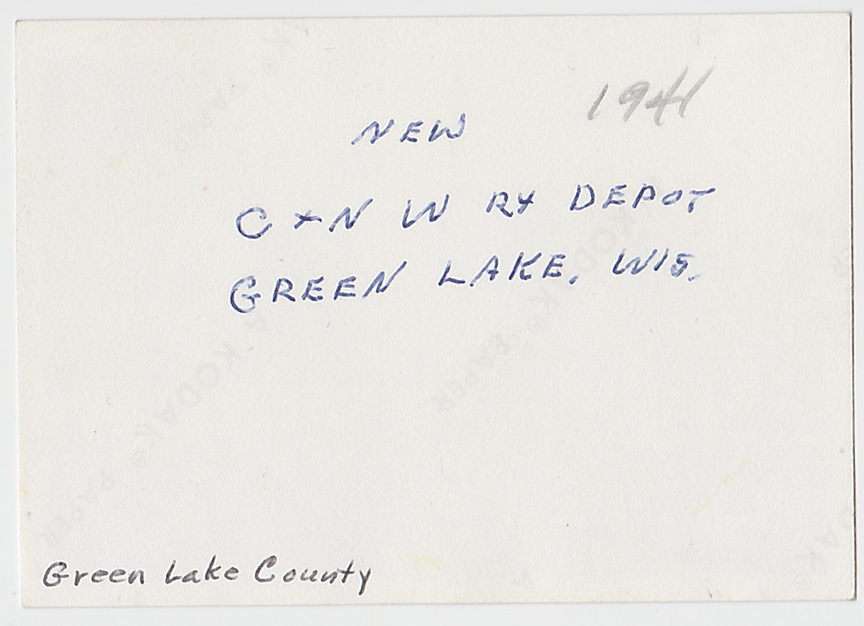 1941
NEW
C + N W RY DEPOT
GREEN LAKE, WIS.
A KODAK® PAPER
Green Lake County